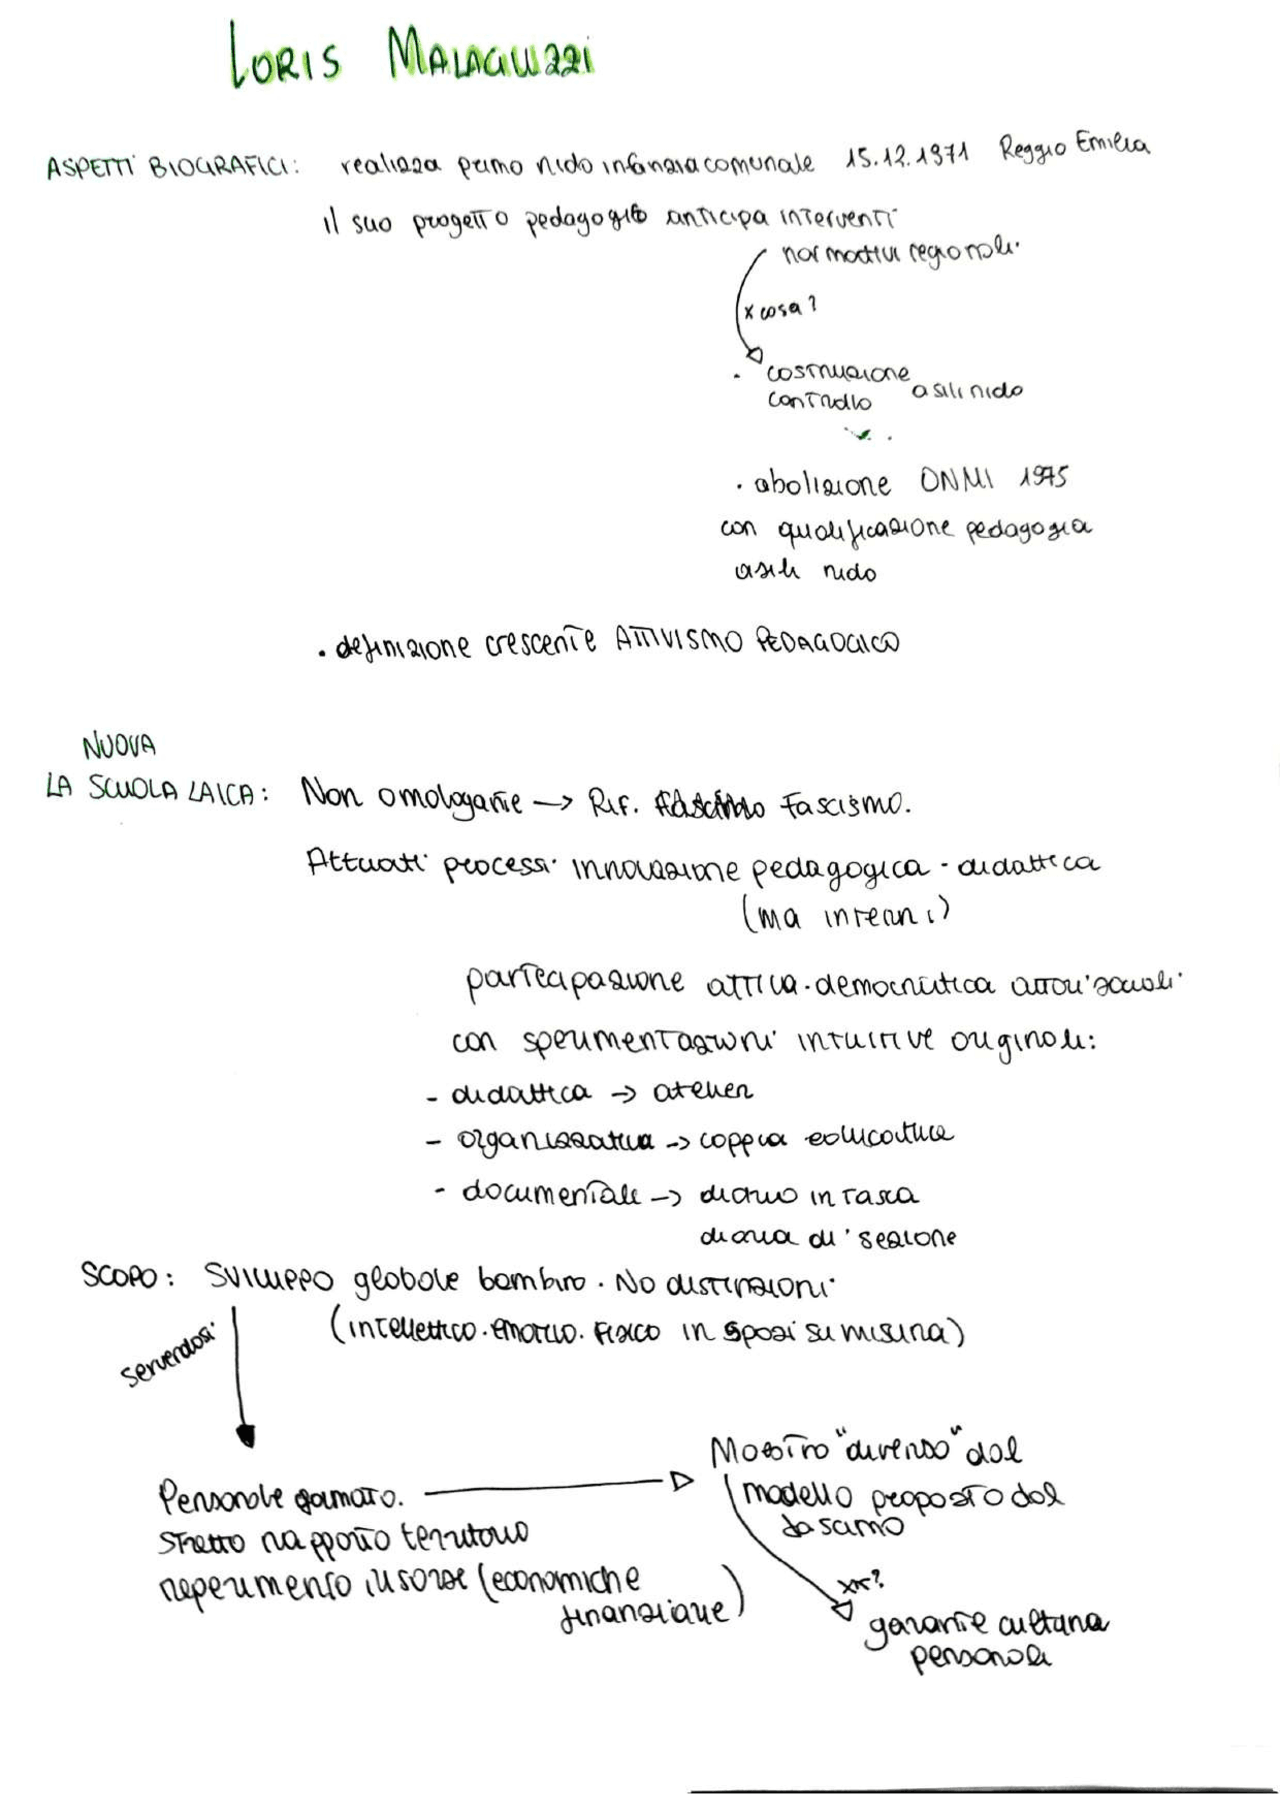 LORIS MALAGUZZI
ASPETTI BIOGRAFICI: realizza primo nido infanzia comunale 15.12.1971 Reggio Emilia
il suo progetto pedagogico anticipa interventi
normativi regionali.
x cosa?
. costruzione
controllo asili nido
. abolizione ONMI 1975
con qualificazione pedagogia
asili nido
. definizione crescente ATTIVISMO PEDAGOGICO
NUOVA
LA SCUOLA LAICA: Non omologante -> Rif. Fascismo.
Attuati processi innovazione pedagogica - didattica
(ma interni)
partecipazione attiva. democratica attori sociali
con sperimentazioni intuitive originali:
- didattica -> atelier
- organizzativa -> coppia educatrice
- documentale -> diario in tasca
diario di sezione
SCOPO: SVILUPPO globale bambino. No distinzioni
(intellettico. emotivo. Fisico in spazi su misura)
servendosi
Personale formato.
stretto rapporto territorio
reperimento risorse (economiche
finanziarie)
Maestro "diverso" dal
modello proposto dal
fascismo
xk?
garante cultura
personale